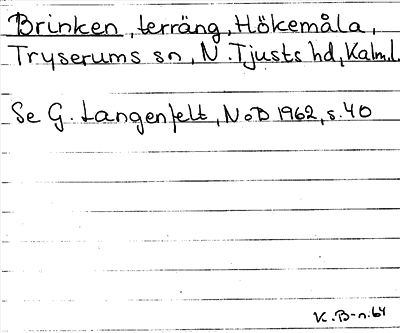 Brinken, terräng, Hökemåla,
Tryserums sn, N. Tjusts hd, Kalm.l.
Se G. Langenfelt, NoB 1962, s. 40
K. B-n. 64